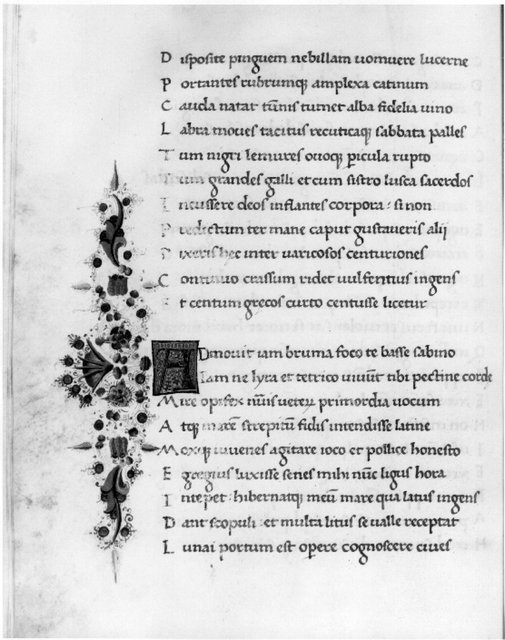 Disposite pinguem nebillam uomuere lucerne
Portantes rubrumq; amplexa catinum
Cauda natat tũnis tumet alba fidelia uino
Labra moues tacitus recuticaq; sabbata palles
Tum nigri lemures ouoq; picula rupto
Tum grandes galli et cum sistro lusca sacerdos
Incussere deos inflantes corpora: si non
Predictum ter mane caput gustaueris alii
Dixeris hec inter uaricosos centuriones
Continuo crassum ridet uulfenius ingens
Et centum grecos curto centusse licetur
Admouit iam bruma foco te basse sabino
Iam ne lyra et tetrico uiuũt tibi pectine corde
Mire opifex nũis ueterũ primordia uocum
Atq; marẽ strepitũ fidis intendisse latine
Mox iuuenes agitare ioco et pollice honesto
Egregius luxisse senes mihi nũc ligus hora
Intepet: hibernatq; meũ mare qua latus ingens
Dant scopuli et multa litus se ualle receptat
Lunai portum est opere cognoscere ciues